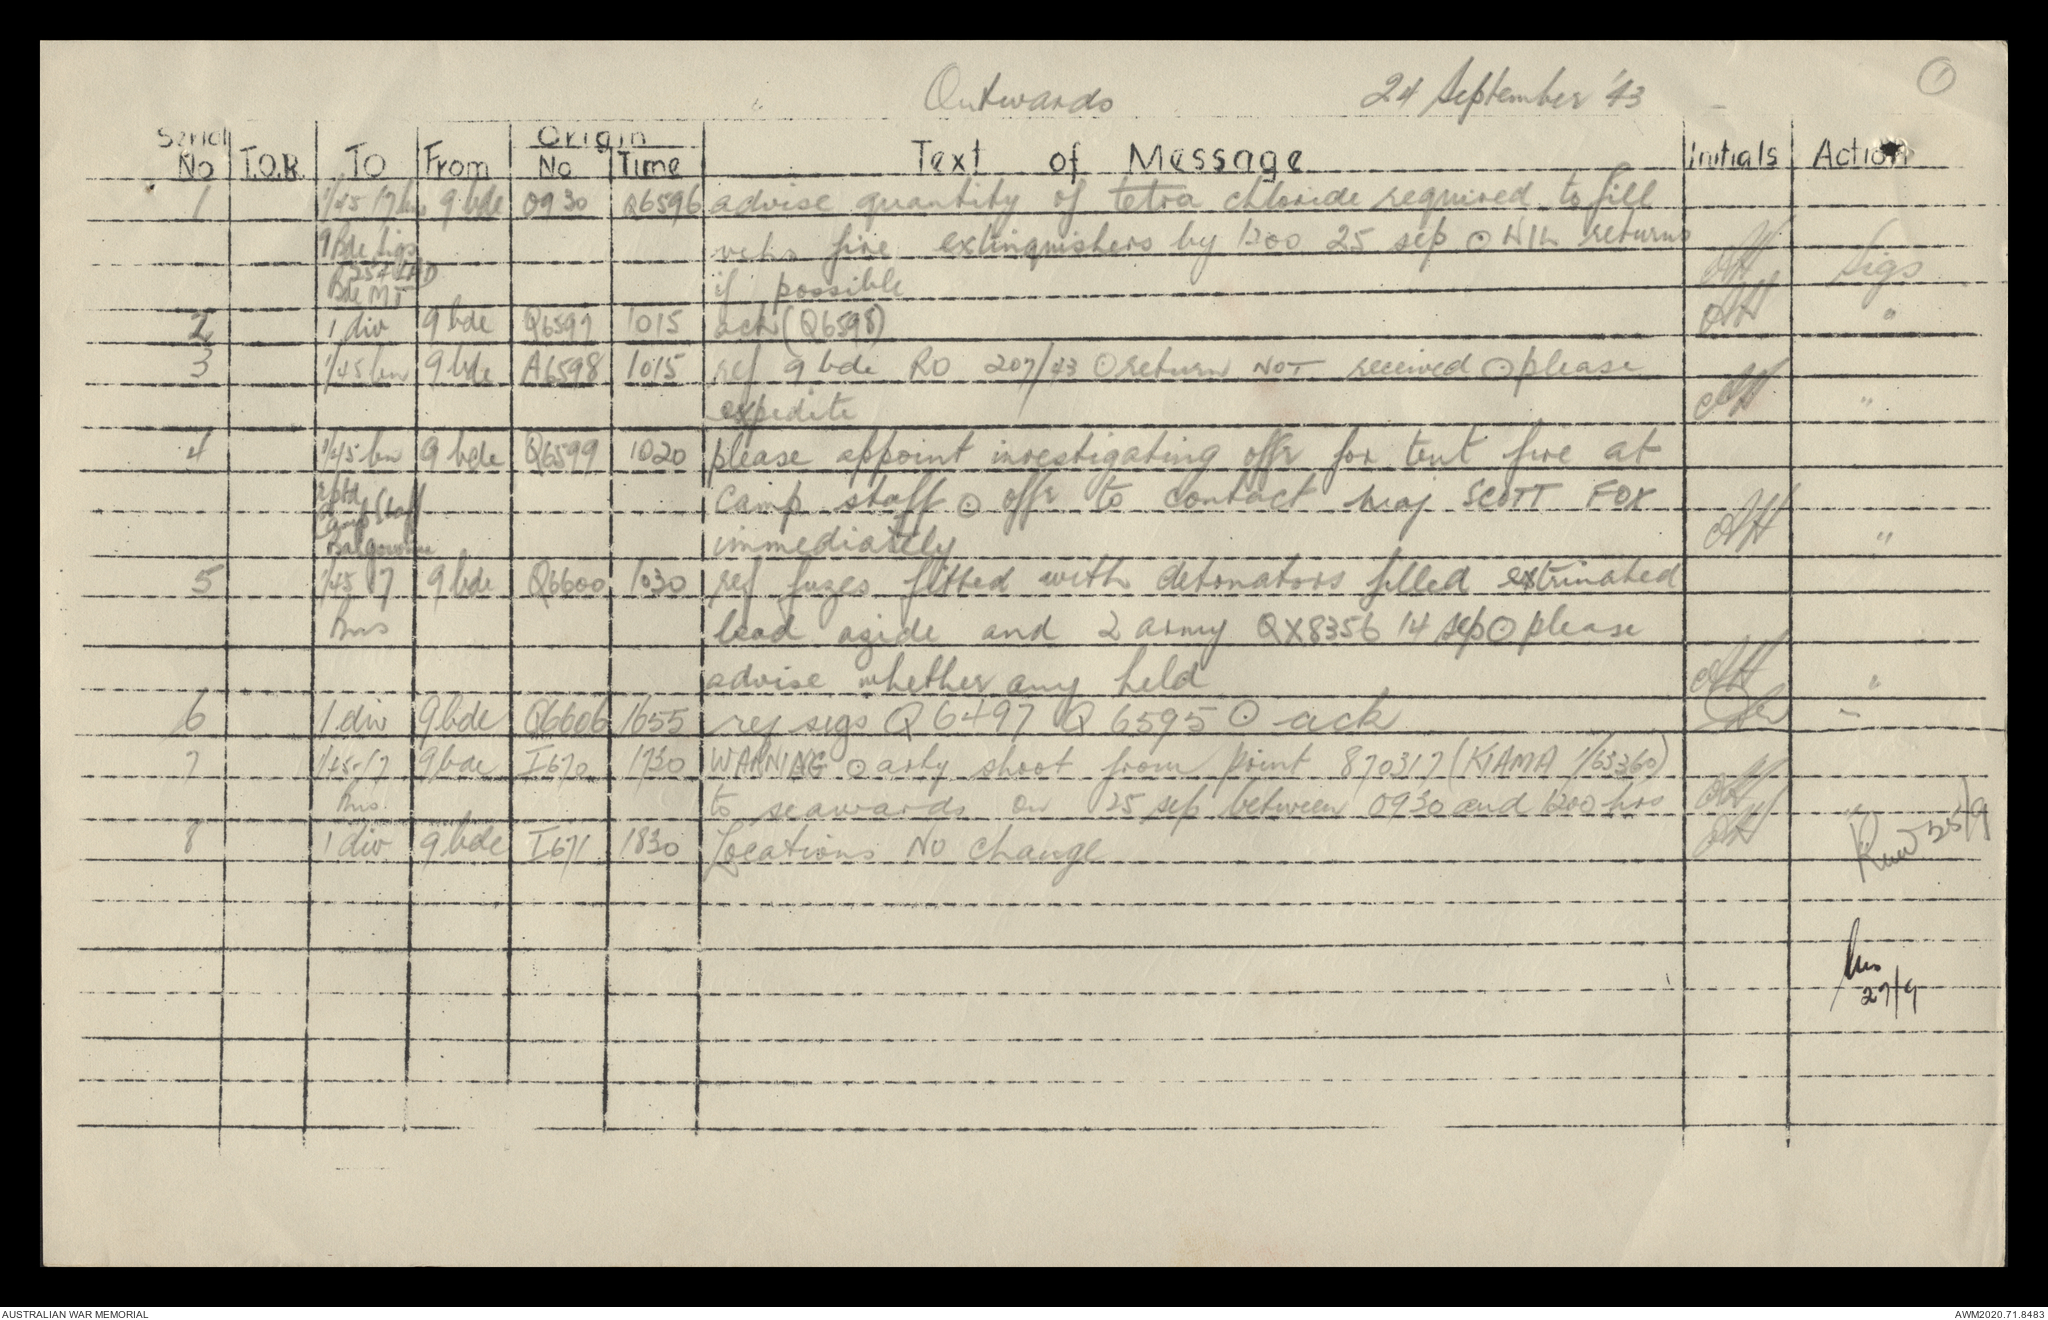 Outwards 24 September '43 1
Serial No T.O.R. TO From Origin No Time Text of Message Initials Action
1 1/45 17 bn 9 bde 0930 Q6596 advise quantity of tetra chloride required to fill
9 Bde Sigs vehs fire extinguishers by 1200 25 sep ⊙ NIL returns Sigs
Bde MT if possible
2 1 div 9 bde Q6597 1015 ack (Q6598) "
3 1/45 bn 9 bde A6598 1015 ref 9 bde RO 207/43 ⊙ return NOT received ⊙ please
expedite "
4 1/45 bn 9 bde Q6599 1020 please appoint investigating offr for tent fire at
rptd Camp Staff camp staff ⊙ offr to contact maj SCOTT FOX
Balgownie immediately "
5 1/45 17 9 bde Q6600 1030 ref fuzes fitted with detonators filled extrinated
Bns lead azide and 2 army QX8356 14 sep ⊙ please
advise whether any held "
6 1 div 9 bde Q6606 1655 ref sigs Q6497 Q6595 ⊙ ack "
7 1/45-17 9 bde I670 1730 WARNING ⊙ arty shoot from point 870317 (KIAMA 1/63360)
Bns to seawards on 25 sep between 0930 and 1200 hrs "
8 1 div 9 bde I671 1830 Locations No change 25/9
27/9
AUSTRALIAN WAR MEMORIAL AWM2020.71.8483